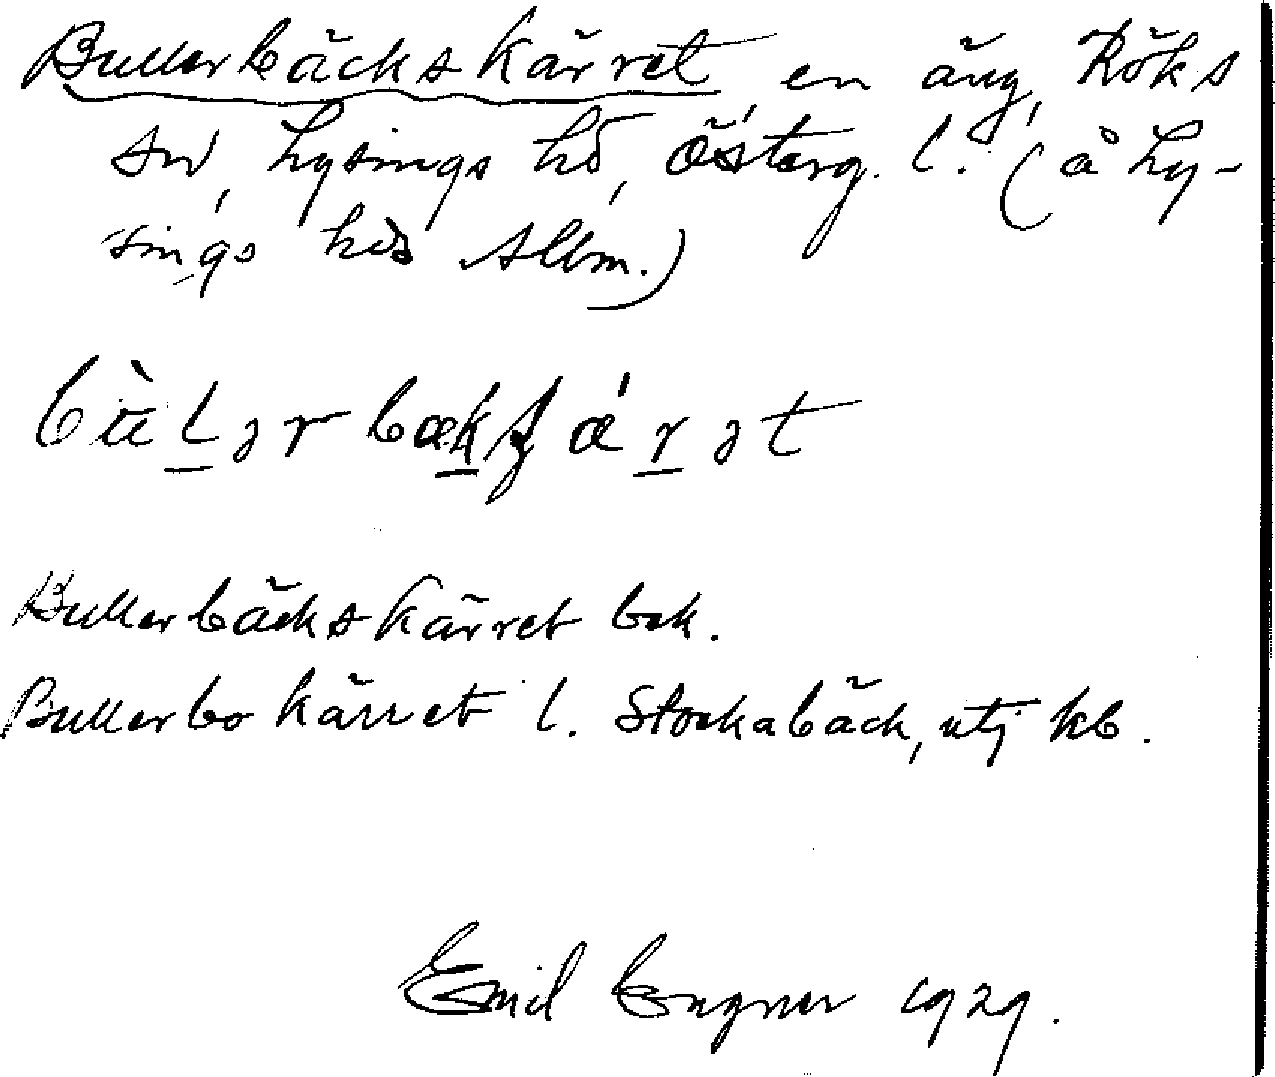 Bullerbäckskärret en äng, Röks
sn, Lysings hd, Österg. l. (å Ly-
sings hds Allm.)
bùlərbækʃǽrət
Bullerbäckskärret bek.
Bullerbo kärret l. Stockabäck, utj kb.
Emil Engner 1929.